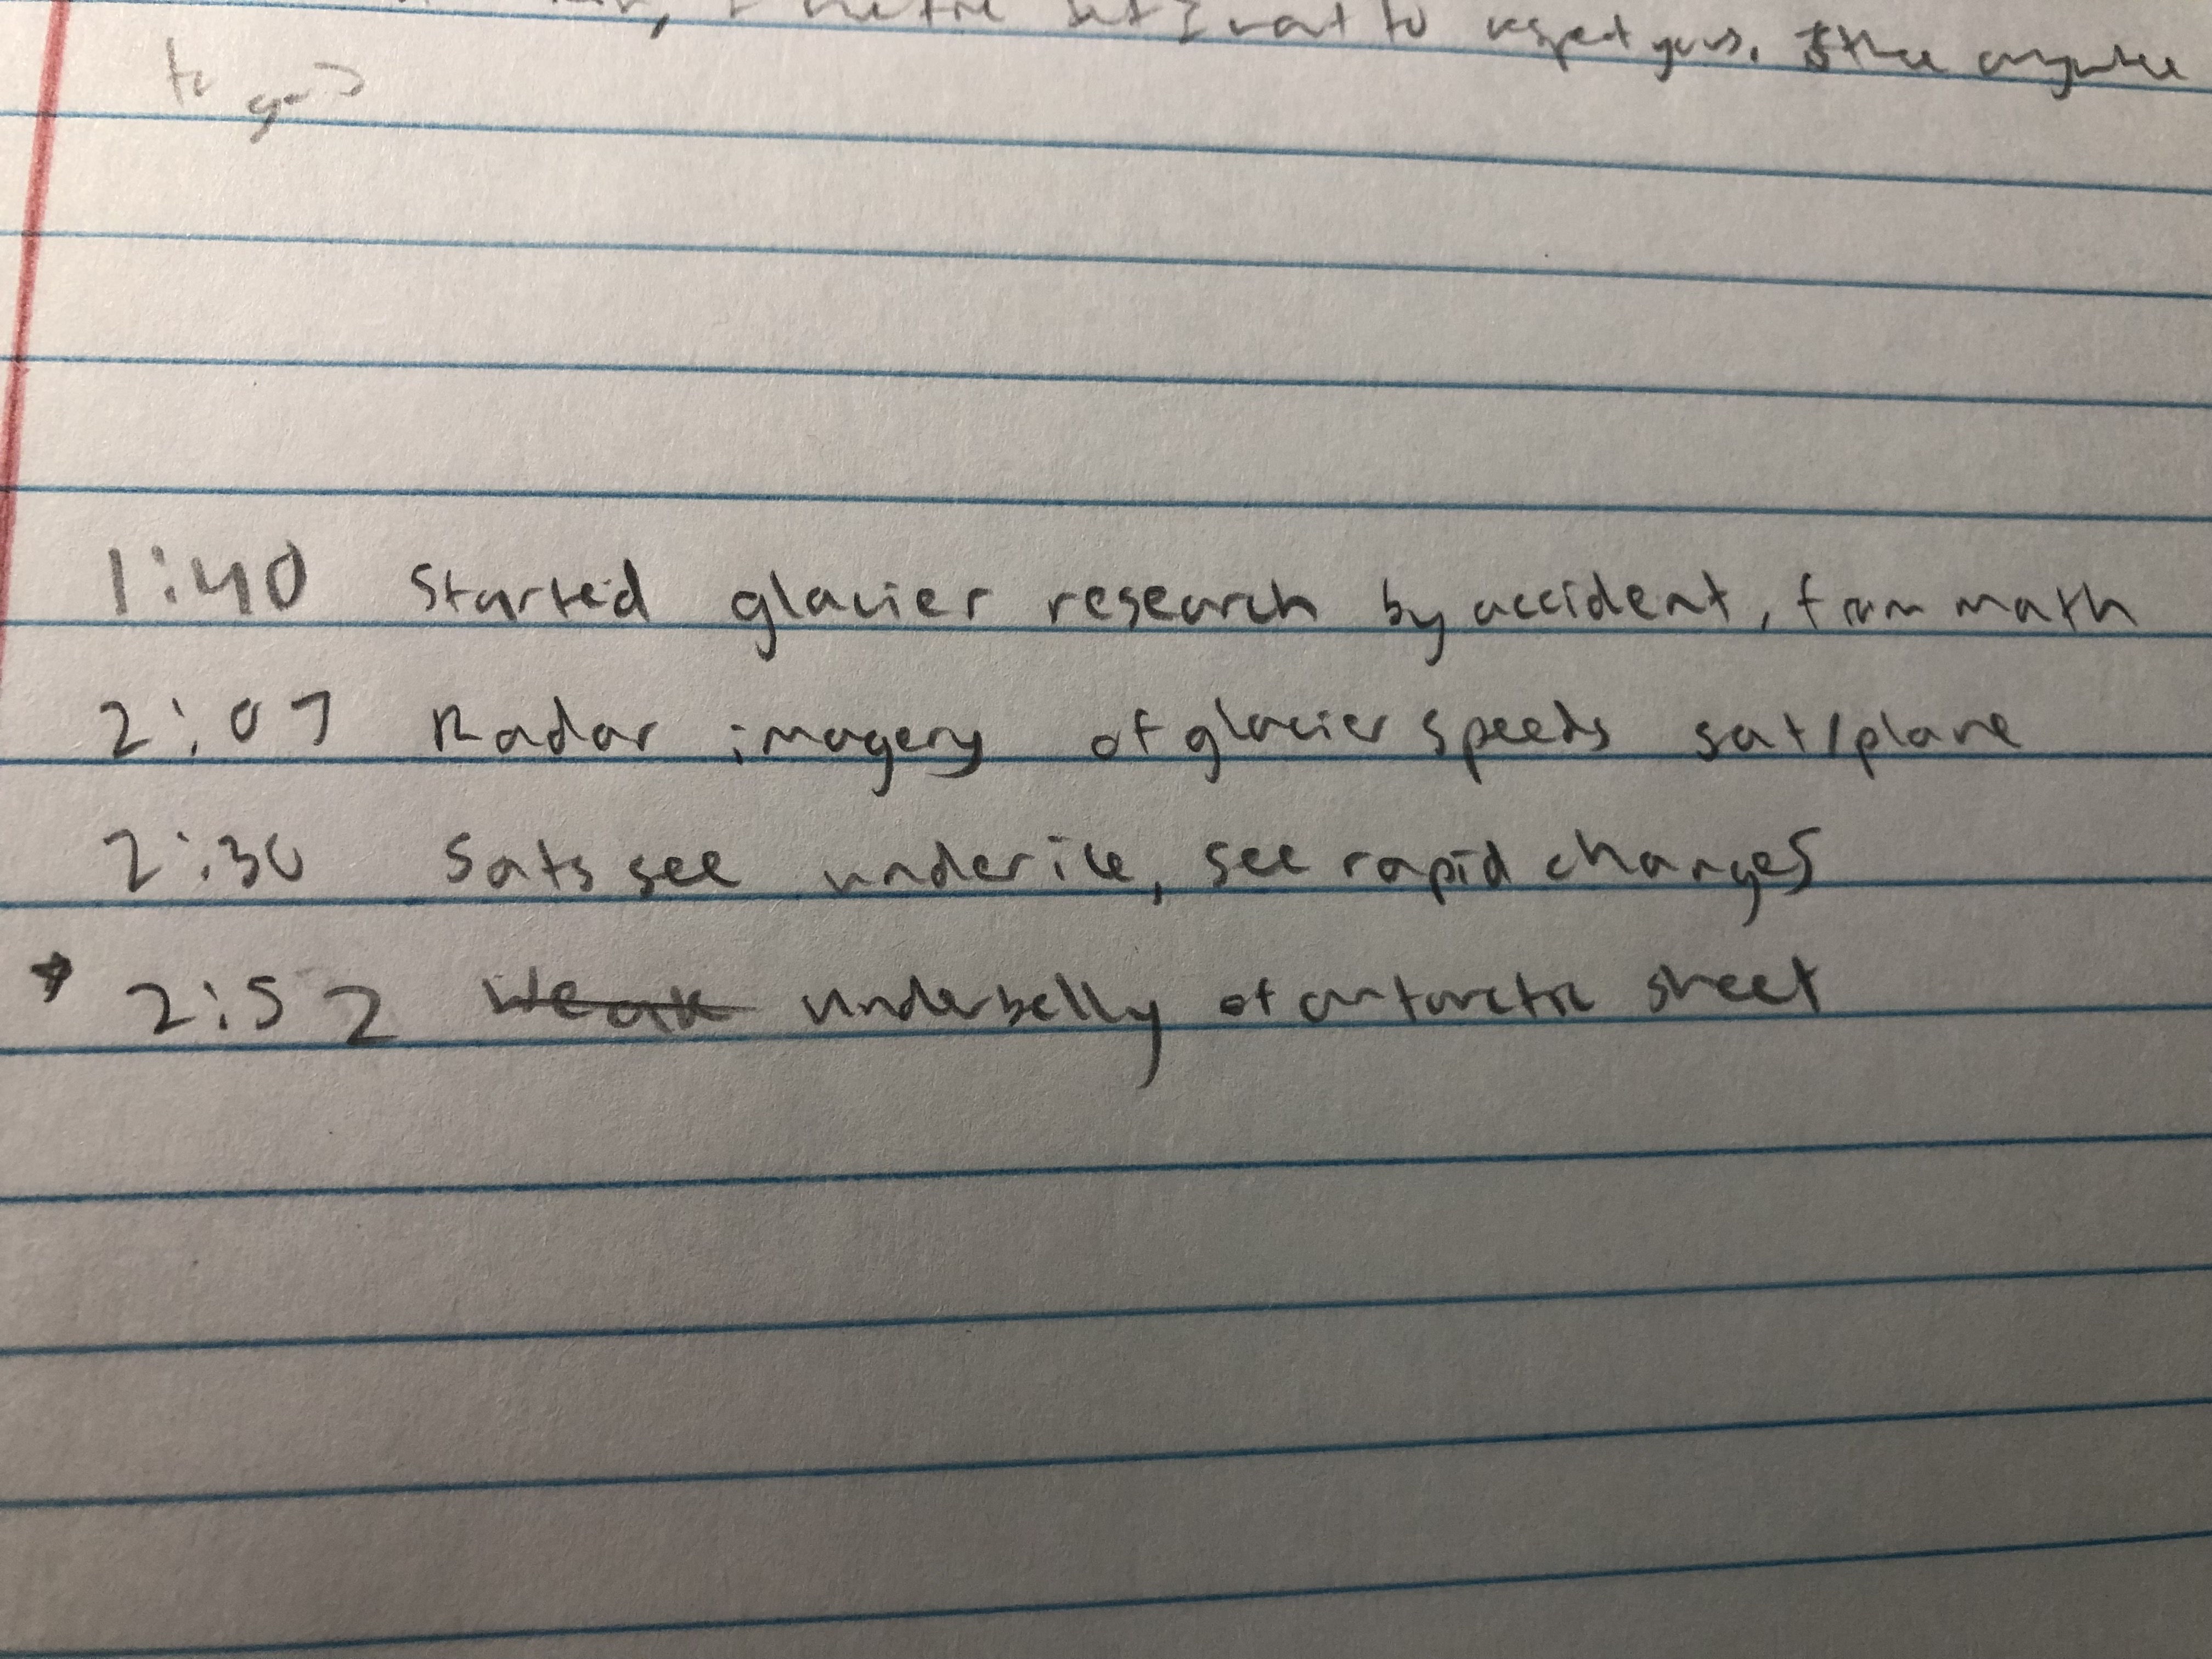 set I want to respect yours. Is there anywhere
to go
1:40 Started glacier research by accident, from math
2:07 Radar imagery of glacier speeds sat/plane
2:30 Sats see under ice, see rapid changes
→ 2:52 Weak underbelly of antarctic sheet